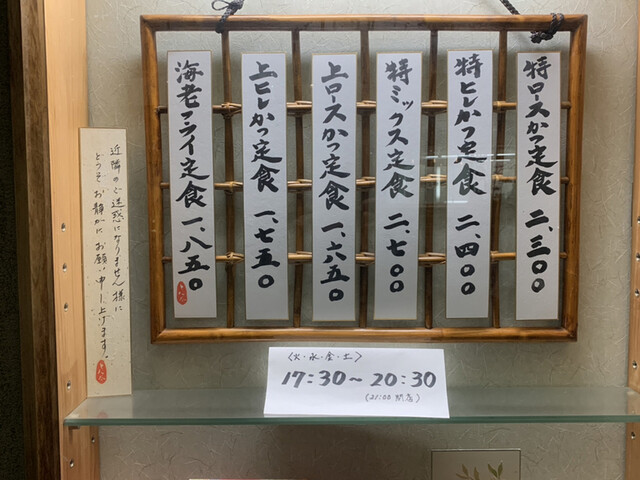 特ロースかつ定食 二、三〇〇
特ヒレかつ定食 二、四〇〇
特ミックス定食 二、七〇〇
上ロースかつ定食 一、六五〇
上ヒレかつ定食 一、七五〇
海老フライ定食 一、八五〇
近隣のご迷惑になりません様に
どうぞお静かに お願い申し上げます。
〈火・水・金・土〉
17:30～20:30
(21:00 閉店)